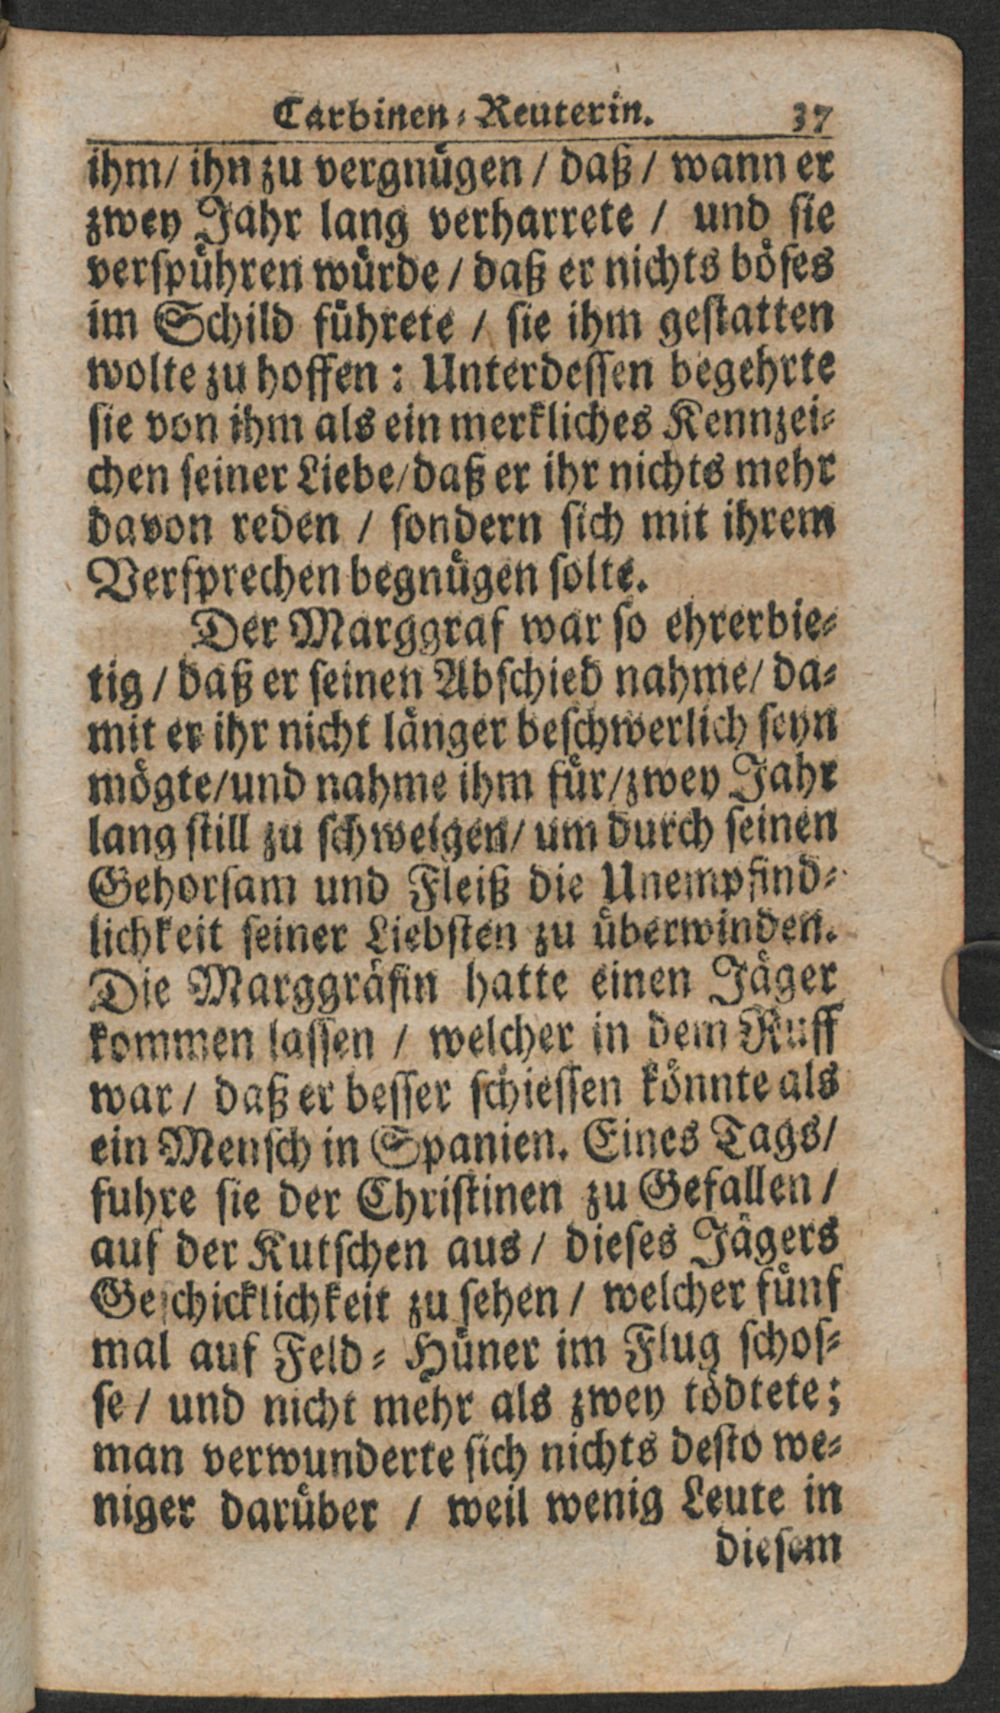 Carbinen-Reuterin. 37
ihm/ ihn zu vergnügen / daß / wann er
zwey Jahr lang verharrete / und sie
verspühren würde / daß er nichts böses
im Schild führete / sie ihm gestatten
wolte zu hoffen: Unterdessen begehrte
sie von ihm als ein merkliches Kennzei-
chen seiner Liebe/daß er ihr nichts mehr
davon reden / sondern sich mit ihrem
Versprechen begnügen solte.
Der Marggraf war so ehrerbie-
tig / daß er seinen Abschied nahme/ da-
mit er ihr nicht länger beschwerlich seyn
mögte/und nahme ihm für/zwey Jahr
lang still zu schweigen/ um durch seinen
Gehorsam und Fleiß die Unempfind-
lichkeit seiner Liebsten zu überwinden.
Die Marggräfin hatte einen Jäger
kommen lassen / welcher in dem Ruff
war / daß er besser schiessen könnte als
ein Mensch in Spanien. Eines Tags/
fuhre sie der Christinen zu Gefallen /
auf der Kutschen aus / dieses Jägers
Geschicklichkeit zu sehen / welcher fünf
mal auf Feld-Hüner im Flug schos-
se / und nicht mehr als zwey tödtete;
man verwunderte sich nichts desto we-
niger darüber / weil wenig Leute in
diesem